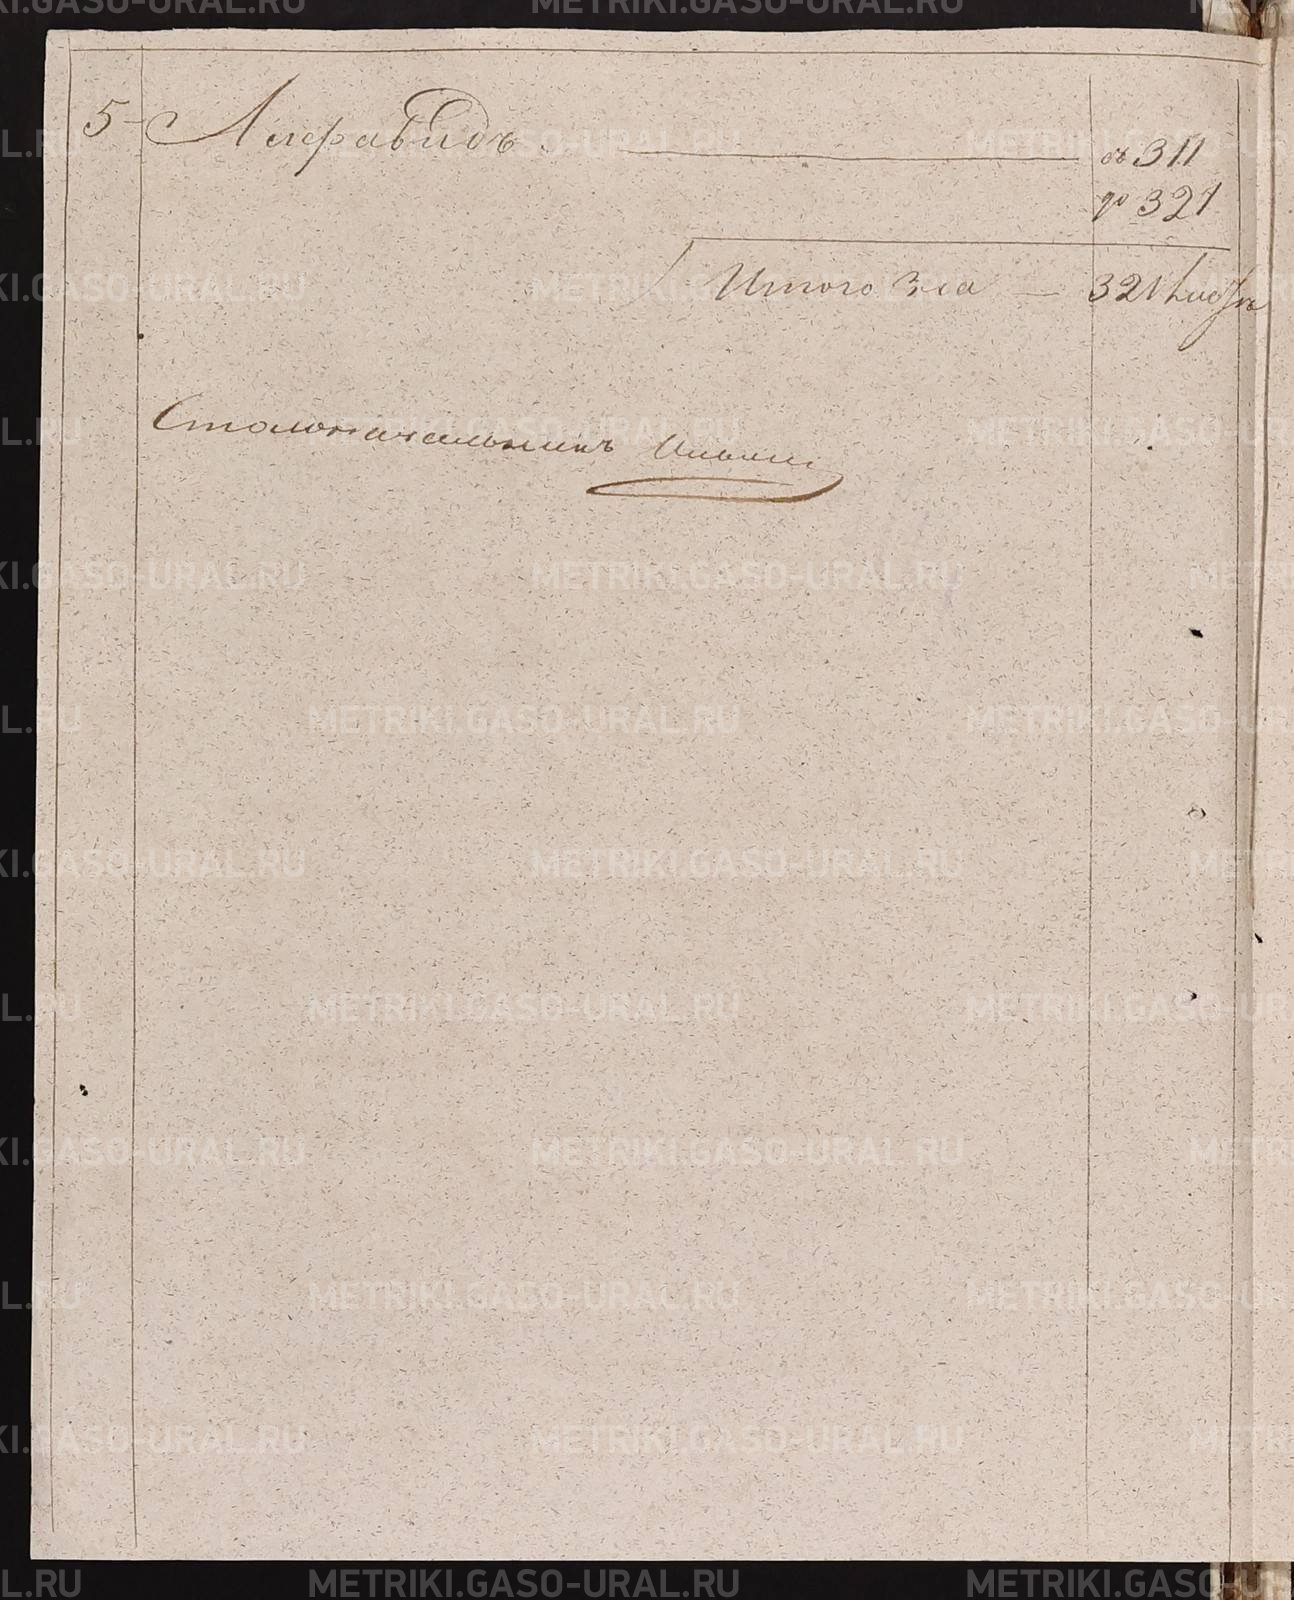 5
съ 311
до 321
Итого 321 листъ
Столоначальникъ
METRIKI.GASO-URAL.RU